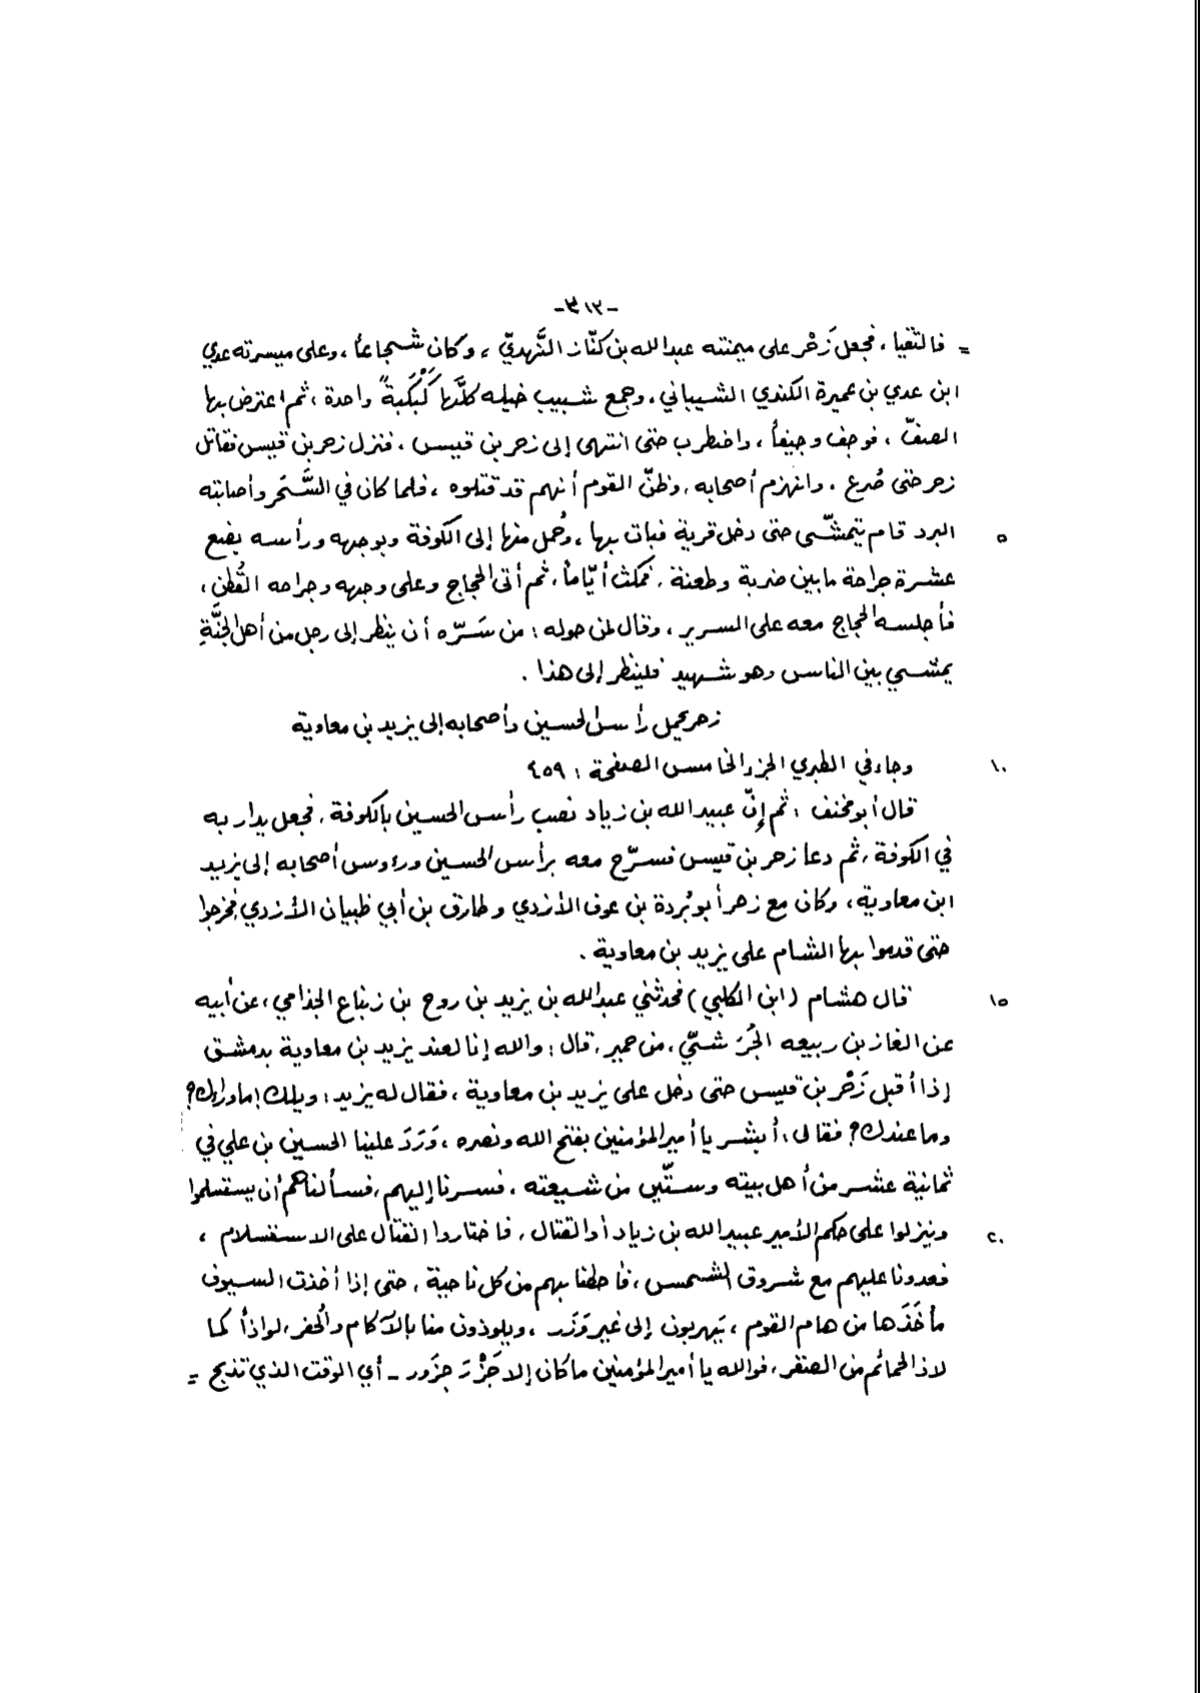 -٣١٢-
= فالتقيا، فجعل زَحْر على ميمنته عبدالله بن كنّاز النَّهديّ، وكان شجاعاً، وعلى ميسرته عدي
ابن عدي بن عميرة الكندي الشيباني، وجمع شبيب خيله كلَّها كَبْكَبةً واحدة، ثم اعترض بها
الصفّ، فوجف وجيفاً، واضطرب حتى انتهى إلى زحر بن قيس، فنزل زحر بن قيس فقاتل
زحر حتى صُرع، وانهزم أصحابه، وظنّ القوم أنهم قد قتلوه، فلما كان في السَّحَر وأصابته
٥ البرد قام يتمشّى حتى دخل قرية فبات بها، وحُمل منها إلى الكوفة وبوجهه ورأسه بضع
عشرة جراحة مابين ضربة وطعنة، فمكث أيّاماً، ثم أتى الحجاج وعلى وجهه وجراحه القُطن،
فأجلسه الحجاج معه على السرير، وقال لمن حوله: من سَرّه أن ينظر إلى رجل من أهل الجنَّةِ
يمشي بين الناس وهو شهيد فلينظر إلى هذا.
زحر يحمل رأس الحسين وأصحابه إلى يزيد بن معاوية
١٠ وجاء في الطبري الجزء الخامس الصفحة: ٤٥٩
قال أبو مخنف: ثم إنّ عبيد الله بن زياد نصب رأس الحسين بالكوفة، فجعل يدار به
في الكوفة، ثم دعا زحر بن قيس فسرّح معه برأس الحسين ورؤوس أصحابه إلى يزيد
ابن معاوية، وكان مع زهر أبو بُردة بن عوف الأزدي وطارق بن أبي ظبيان الأزدي فخرجوا
حتى قدموا بها الشام على يزيد بن معاوية.
١٥ قال هشام (ابن الكلبي) فحدثني عبدالله بن يزيد بن روح بن زنباع الجذامي، عن أبيه
عن الغاز بن ربيعه الجُرَشيّ، من حمير، قال: والله إنا لعند يزيد بن معاوية بدمشق
إذا أقبل زَحْر بن قيس حتى دخل على يزيد بن معاوية، فقال له يزيد: ويلك! ماوراءك؟
وما عندك؟ فقال: أبشر يا أمير المؤمنين بفتح الله ونصره، وَرَدَ علينا الحسين بن علي في
ثمانية عشر من أهل بيته وستّين من شيعته، فسرنا إليهم، فسألناهم أن يستسلموا
٢٠ وينزلوا على حكم الأمير عبيد الله بن زياد أو القتال، فاختاروا القتال على الاستسلام،
فعدونا عليهم مع شروق الشمس، فأحطنا بهم من كل ناحية، حتى إذا أخذت السيوف
مأخَذَها من هام القوم، يَهربون إلى غير وَزَر، ويلوذون منا بالآكام والحُفر، لواذاً كما
لاذ الحمائم من الصقر، فوالله يا أمير المؤمنين ما كان إلا جَزْرَ جزَور - أي الوقت الذي تذبح =